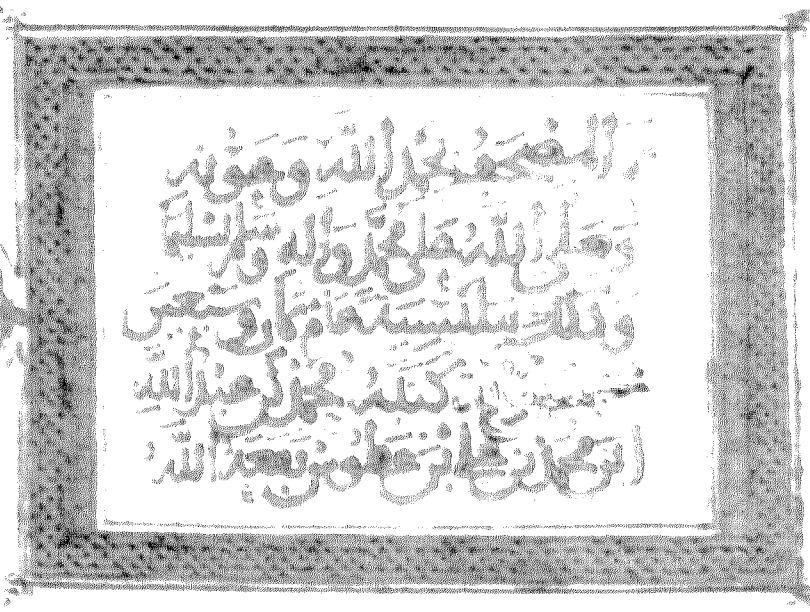 المصحف بحمد الله وعونه
وصلى الله على محمد وآله وسلم تسليما
وذلك ببلنسية عام
كتبه محمد بن عبد الله
ابن محمد بن علي بن غطوس نفعه الله